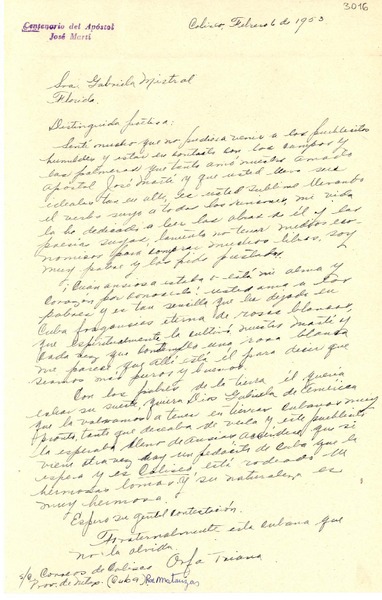 3016
Centenario del Apóstol
José Martí
Coliseo, Febrero 6 de 1953
Sra. Gabriela Mistral
Florida.
Distinguida poetisa:
Sentí mucho que no pudiese venir a los pueblecitos
humildes y estar en contacto con los campos y
las palmeras que tanto amó nuestro amado
Apóstol José Martí y que usted lleva sus
ideales tan en alto, es usted sublime llevando
el verbo suyo a todos los rincones, mi vida
la he dedicado a leer las obras de él y las
poesías suyas, lamento no tener medios eco-
nómicos para comprar muchos libros, soy
muy pobre y los pido prestados.
¡Cuán ansiosa estaba o está mi alma y
corazón por conocerla! usted ama a los
pobres y es tan sencilla que ha dejado en
Cuba fragancias eterna de rosas blancas,
que espiritualmente la cultivó nuestro Martí y
cada vez que contemplo una rosa blanca
me parece que allí está él para decir que
seamos mas puros y buenos.
Con los pobres de la tierra él quería
echar su suerte, quiera Dios Gabriela de América
que la volvamos a tener en tierras cubanas muy
pronto, tanto que deseaba de verla y este pueblecito
la esperaba lleno de ansias
viene otra vez hay un pedacito de Cuba que la
espera y es Coliseo, está rodeado de
hermosas lomas y su naturaleza es
muy hermosa.
Espero su gentil contestación.
Fraternalmente esta cubana que
no la olvida.
Orfa Triana
s/c Correos de Coliseo
Prov. de Mtzs. (Cuba) Matanzas